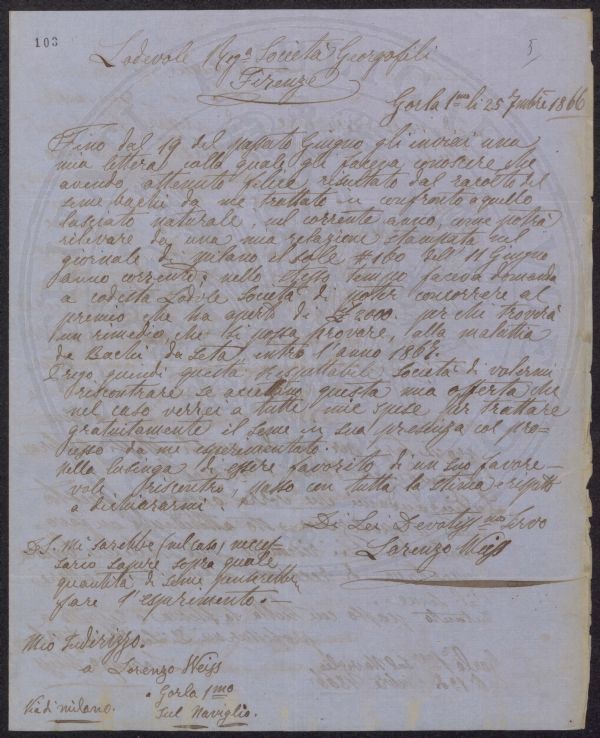 103
5
Lodevole Rega Società Georgofili
Firenze
Gorla 1mo li 25 7mbre 1866
Fino dal 19 del passato Giugno gli inviai una
mia lettera colla quale gli faceva conoscere che
avendo ottenuto felice risultato dal racolto del
seme bachi da me trattato in confronto a quello
lasciato naturale, nel corrente anno, come potrà
rilevare da una mia relazione stampata nel
giornale di Milano il Sole #160 dell' 11 Giugno
anno corrente; nello stesso tempo faceva domanda
a codesta Lodole Società di poter concorrere al
premio che ha aperto di £ 2000. per chi troverà
un rimedio, che si possa provare, alla malattia
de Bachi da Seta, entro l'anno 1867.
Prego quindi questa Rispettabile Società di volermi
riscontrare se accettano questa mia offerta che
nel caso verrei a tutte mie spese per trattare
gratuitamente il seme in sua presenza col pro-
cesso da me esperimentato.
Nella lusinga di essere favorito di un suo favore-
vole riscontro, passo con tutta la stima e rispetto
a dichiararmi
Di Lei Devotiss mo Servo
Lorenzo Weiss
P.S. Mi sarebbe (nel caso) neces
sario sapere sopra quale
quantità di seme
fare l'esperimento.-
Mio Indirizzo.
a Lorenzo Weiss
a Gorla 1mo
Via di Milano.
Sul Naviglio.